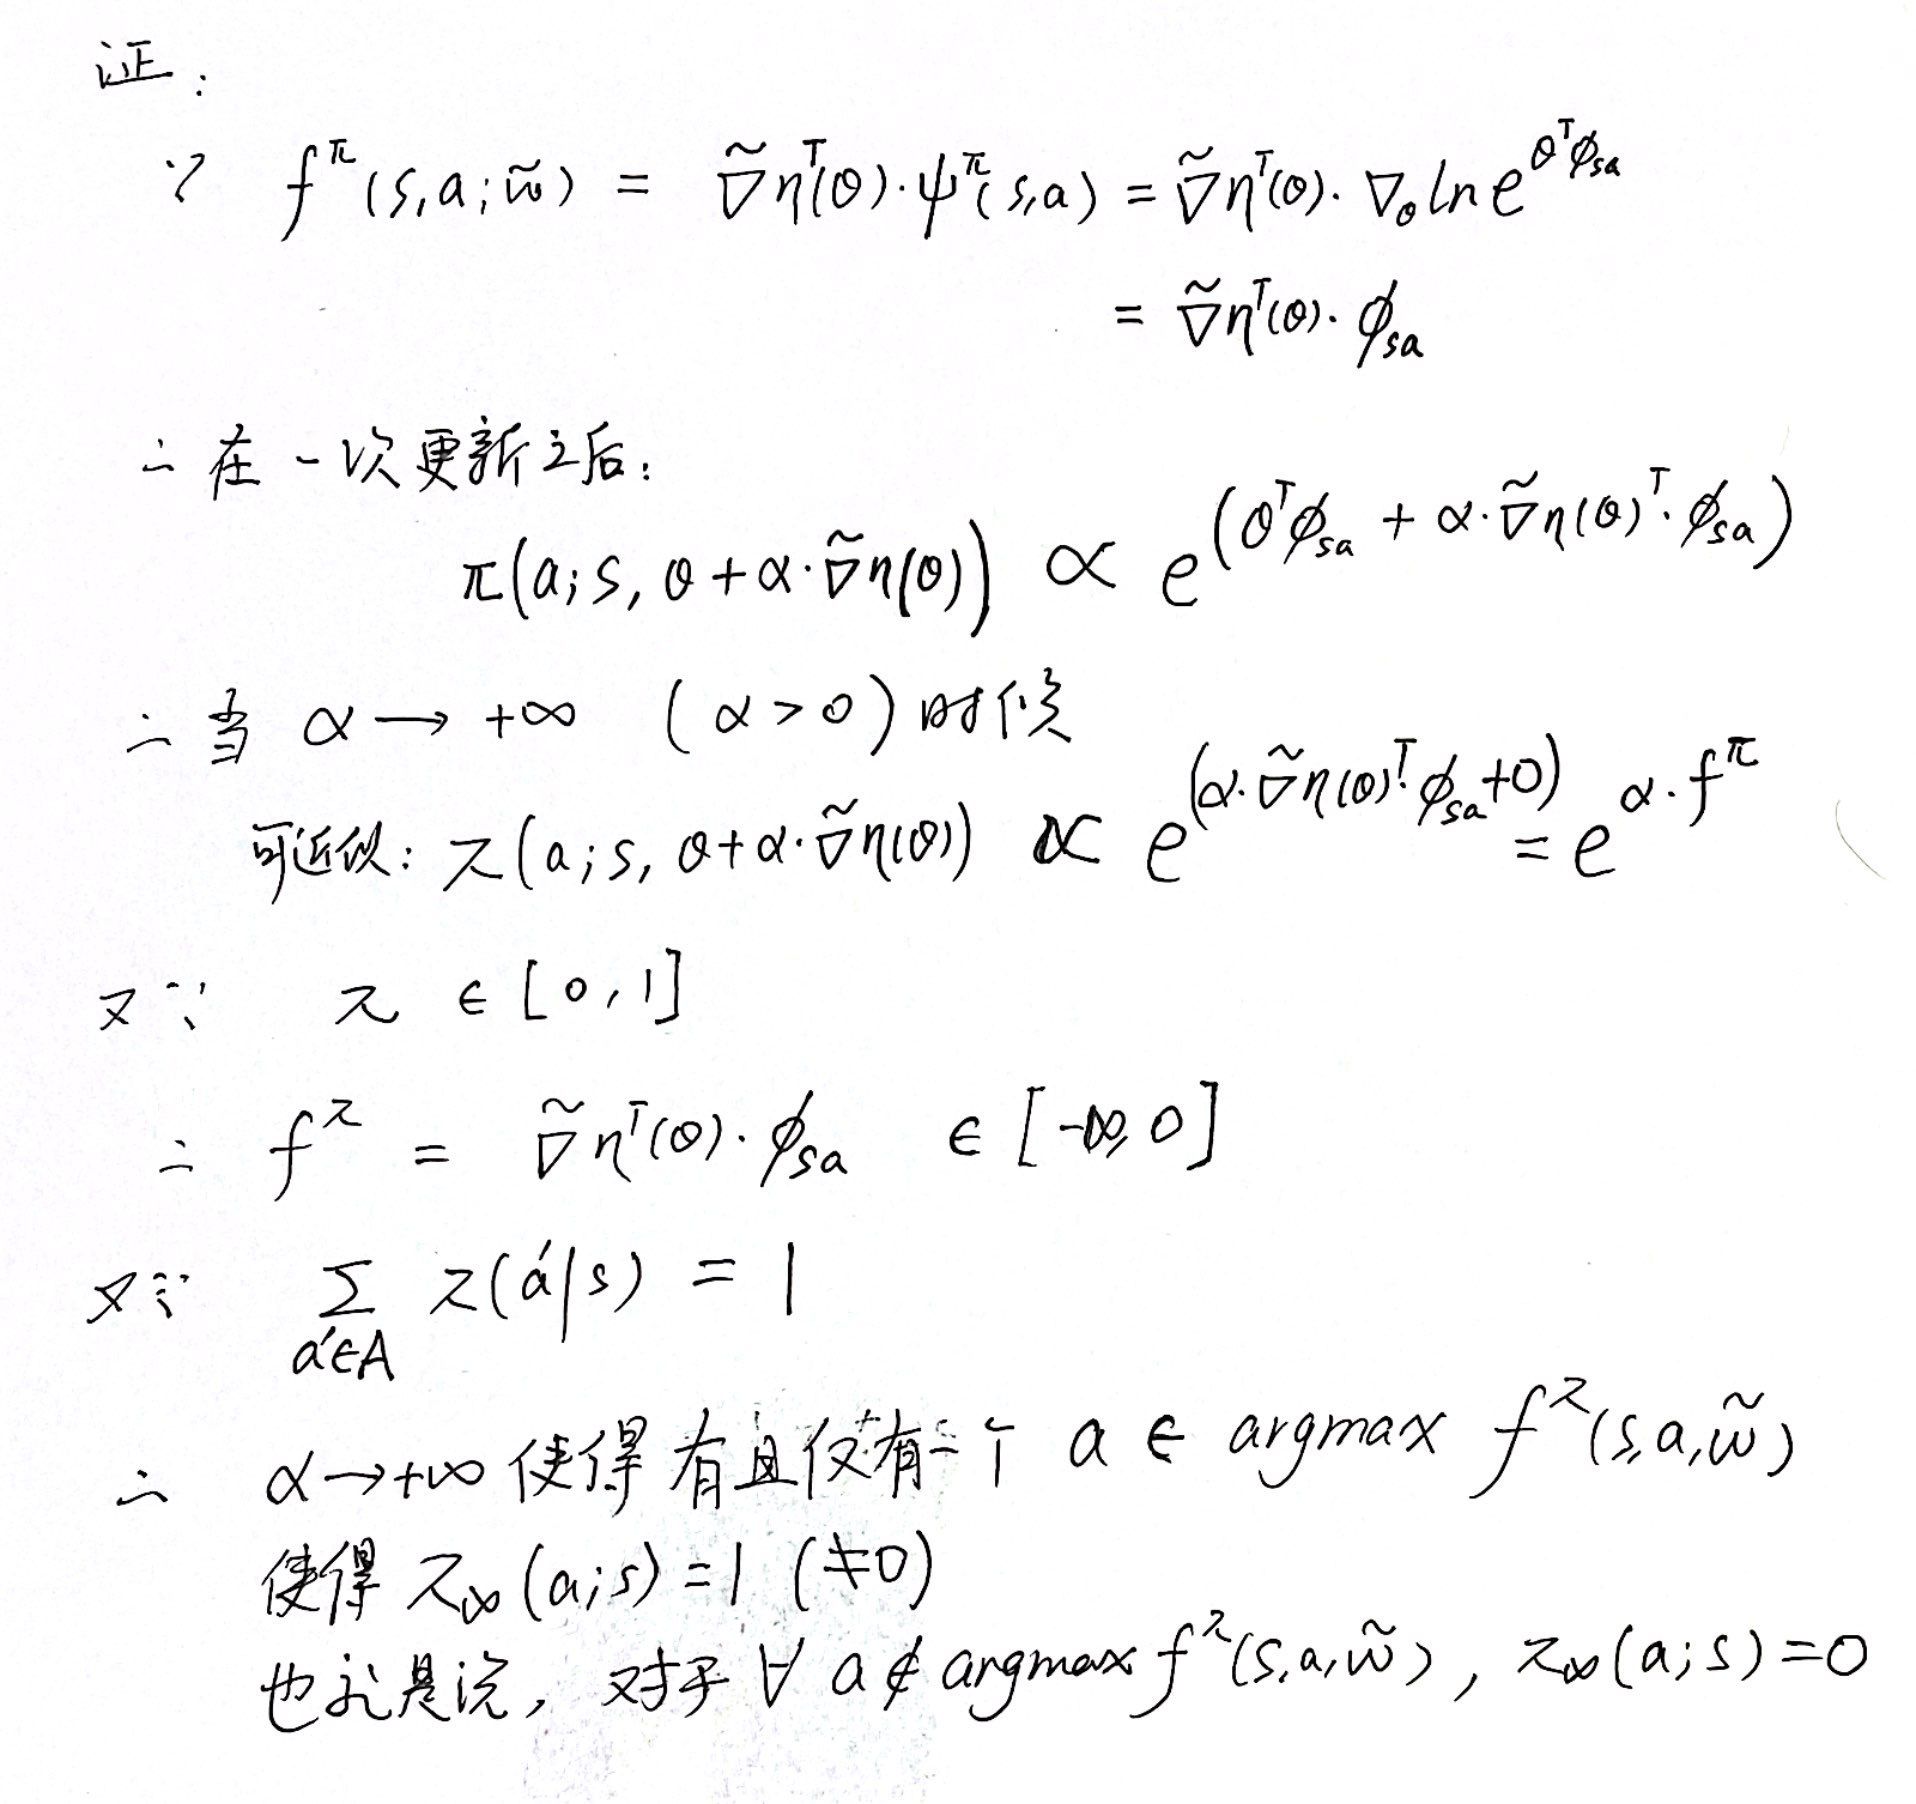 证:
∵ f^π(s,a;w̃) = ∇̃η^T(θ)·ψ^π(s,a) = ∇̃η^T(θ)·∇_θ ln e^{θ^Tφ_sa}
= ∇̃η^T(θ)·φ_sa
∴ 在一次更新之后:
π(a;s, θ+α·∇̃η(θ)) ∝ e^{(θ^Tφ_sa + α·∇̃η(θ)^T·φ_sa)}
∴ 当 α → +∞ (α>0) 时候
可近似: π(a;s, θ+α·∇̃η(θ)) ∝ e^{(α·∇̃η(θ)^T·φ_sa+0)} = e^{α·f^π}
又∵ π ∈ [0,1]
∴ f^π = ∇̃η^T(θ)·φ_sa ∈ [-∞,0]
又∵ ∑_{a'∈A} π(a'|s) = 1
∴ α→+∞ 使得 有且仅有一个 a ∈ argmax f^π(s,a,w̃)
使得 π_∞(a;s)=1 (≠0)
也就是说, 对于 ∀ a ∉ argmax f^π(s,a,w̃), π_∞(a;s)=0